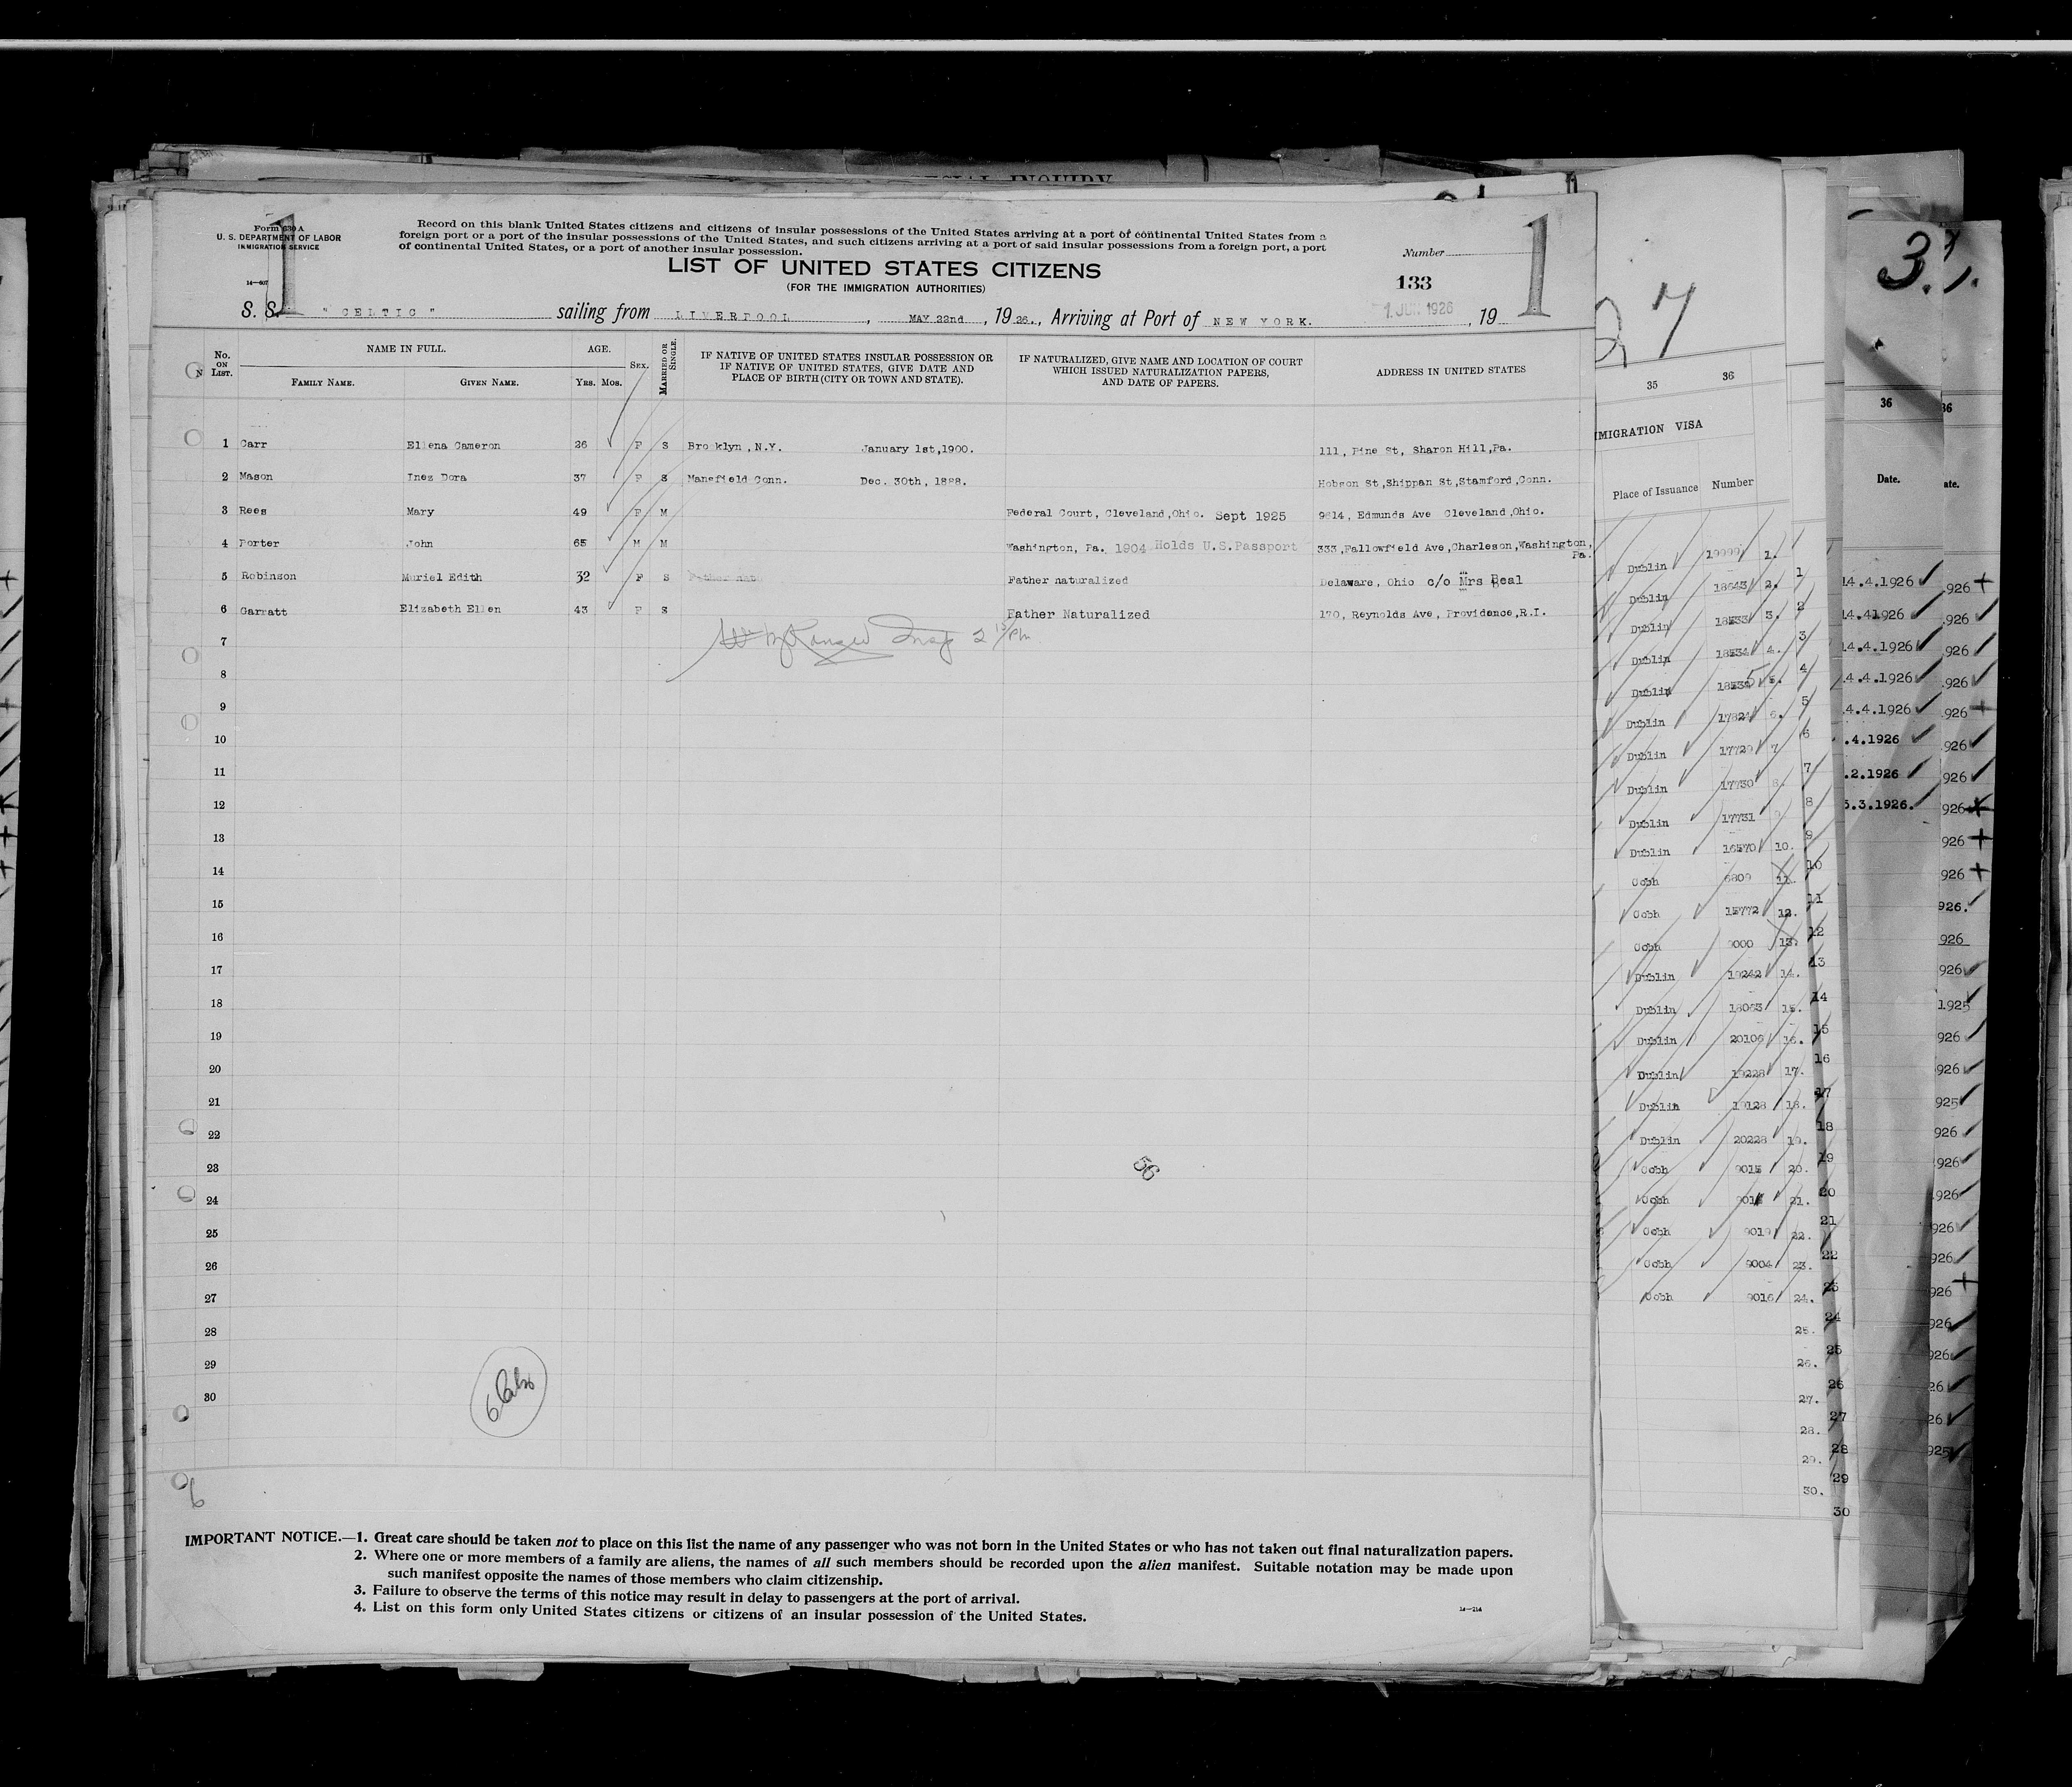 SPECIAL INQUIRY
Form 630 A
U. S. DEPARTMENT OF LABOR
IMMIGRATION SERVICE
1
Record on this blank United States citizens and citizens of insular possessions of the United States arriving at a port of continental United States from a
foreign port or a port of the insular possessions of the United States, and such citizens arriving at a port of said insular possessions from a foreign port, a port
of continental United States, or a port of another insular possession.
LIST OF UNITED STATES CITIZENS
(FOR THE IMMIGRATION AUTHORITIES)
Number
133
1
S. S. " CELTIC " sailing from LIVERPOOL , MAY 22nd , 1926., Arriving at Port of NEW YORK. 1. JUN 1926 , 19
No. ON LIST. NAME IN FULL. AGE. SEX. MARRIED OR SINGLE. IF NATIVE OF UNITED STATES INSULAR POSSESSION OR IF NATIVE OF UNITED STATES, GIVE DATE AND PLACE OF BIRTH (CITY OR TOWN AND STATE). IF NATURALIZED, GIVE NAME AND LOCATION OF COURT WHICH ISSUED NATURALIZATION PAPERS, AND DATE OF PAPERS. ADDRESS IN UNITED STATES
FAMILY NAME. GIVEN NAME. Yrs. Mos.
1 Carr Ellena Cameron 26 F S Brooklyn, N.Y. January 1st,1900. 111, Pine St, Sharon Hill,Pa.
2 Mason Inez Dora 37 F S Mansfield Conn. Dec. 30th, 1888. Hobson St,Shippan St,Stamford,Conn.
3 Rees Mary 49 F M Federal Court, Cleveland,Ohio. Sept 1925 9614, Edmunds Ave Cleveland,Ohio.
4 Porter John 65 M M Washington, Pa. 1904 Holds U.S.Passport 333,Fallowfield Ave,Charleson,Washington,
Pa.
5 Robinson Muriel Edith 32 F S Father naturalized Delaware, Ohio c/o Mrs Beal
6 Garratt Elizabeth Ellen 43 F S Father Naturalized 170, Reynolds Ave, Providence,R.I.
7
8
9
10
11
12
13
14
15
16
17
18
19
20
21
22
23
24
25
26
27
28
29
30
56
6
IMPORTANT NOTICE.—1. Great care should be taken not to place on this list the name of any passenger who was not born in the United States or who has not taken out final naturalization papers.
2. Where one or more members of a family are aliens, the names of all such members should be recorded upon the alien manifest. Suitable notation may be made upon
such manifest opposite the names of those members who claim citizenship.
3. Failure to observe the terms of this notice may result in delay to passengers at the port of arrival.
4. List on this form only United States citizens or citizens of an insular possession of the United States.
14—214
27
35 36
IMMIGRATION VISA
Place of Issuance Number
Dublin 1.
Dublin 18643 2.
Dublin 18533 3.
Dublin 18534 4.
Dublin 5.
Dublin 17824 6.
Dublin 17729 7
Dublin 17730 8.
Dublin 17731
Dublin 16570 10.
Cobh 6809 11.
Cobh 15772 12.
Cobh 9000 13.
Dublin 19242 14.
Dublin 18063 15.
Dublin 20106 16.
Dublin 19228 17.
Dublin 19128 18.
Dublin 20228 19.
Cobh 9015 20.
Cobh 21.
Cobh 9019 22.
Cobh 9004 23.
Cobh 9016 24.
25.
26.
27.
28.
29.
30.
1
2
3
4
5
6
7
8
9
10
11
12
13
14
15
16
17
18
19
20
21
22
23
24
25
26
27
28
29
30
3.
36
Date.
14.4.1926
14.41926
14.4.1926
4.4.1926
4.4.1926
.4.1926
.2.1926
5.3.1926.
36
ate.
926
926
926
926
926
926
926
926
926
926
926.
926
926
1925
926
926
925
926
926
926
926
926
926
926
926
26
26
925